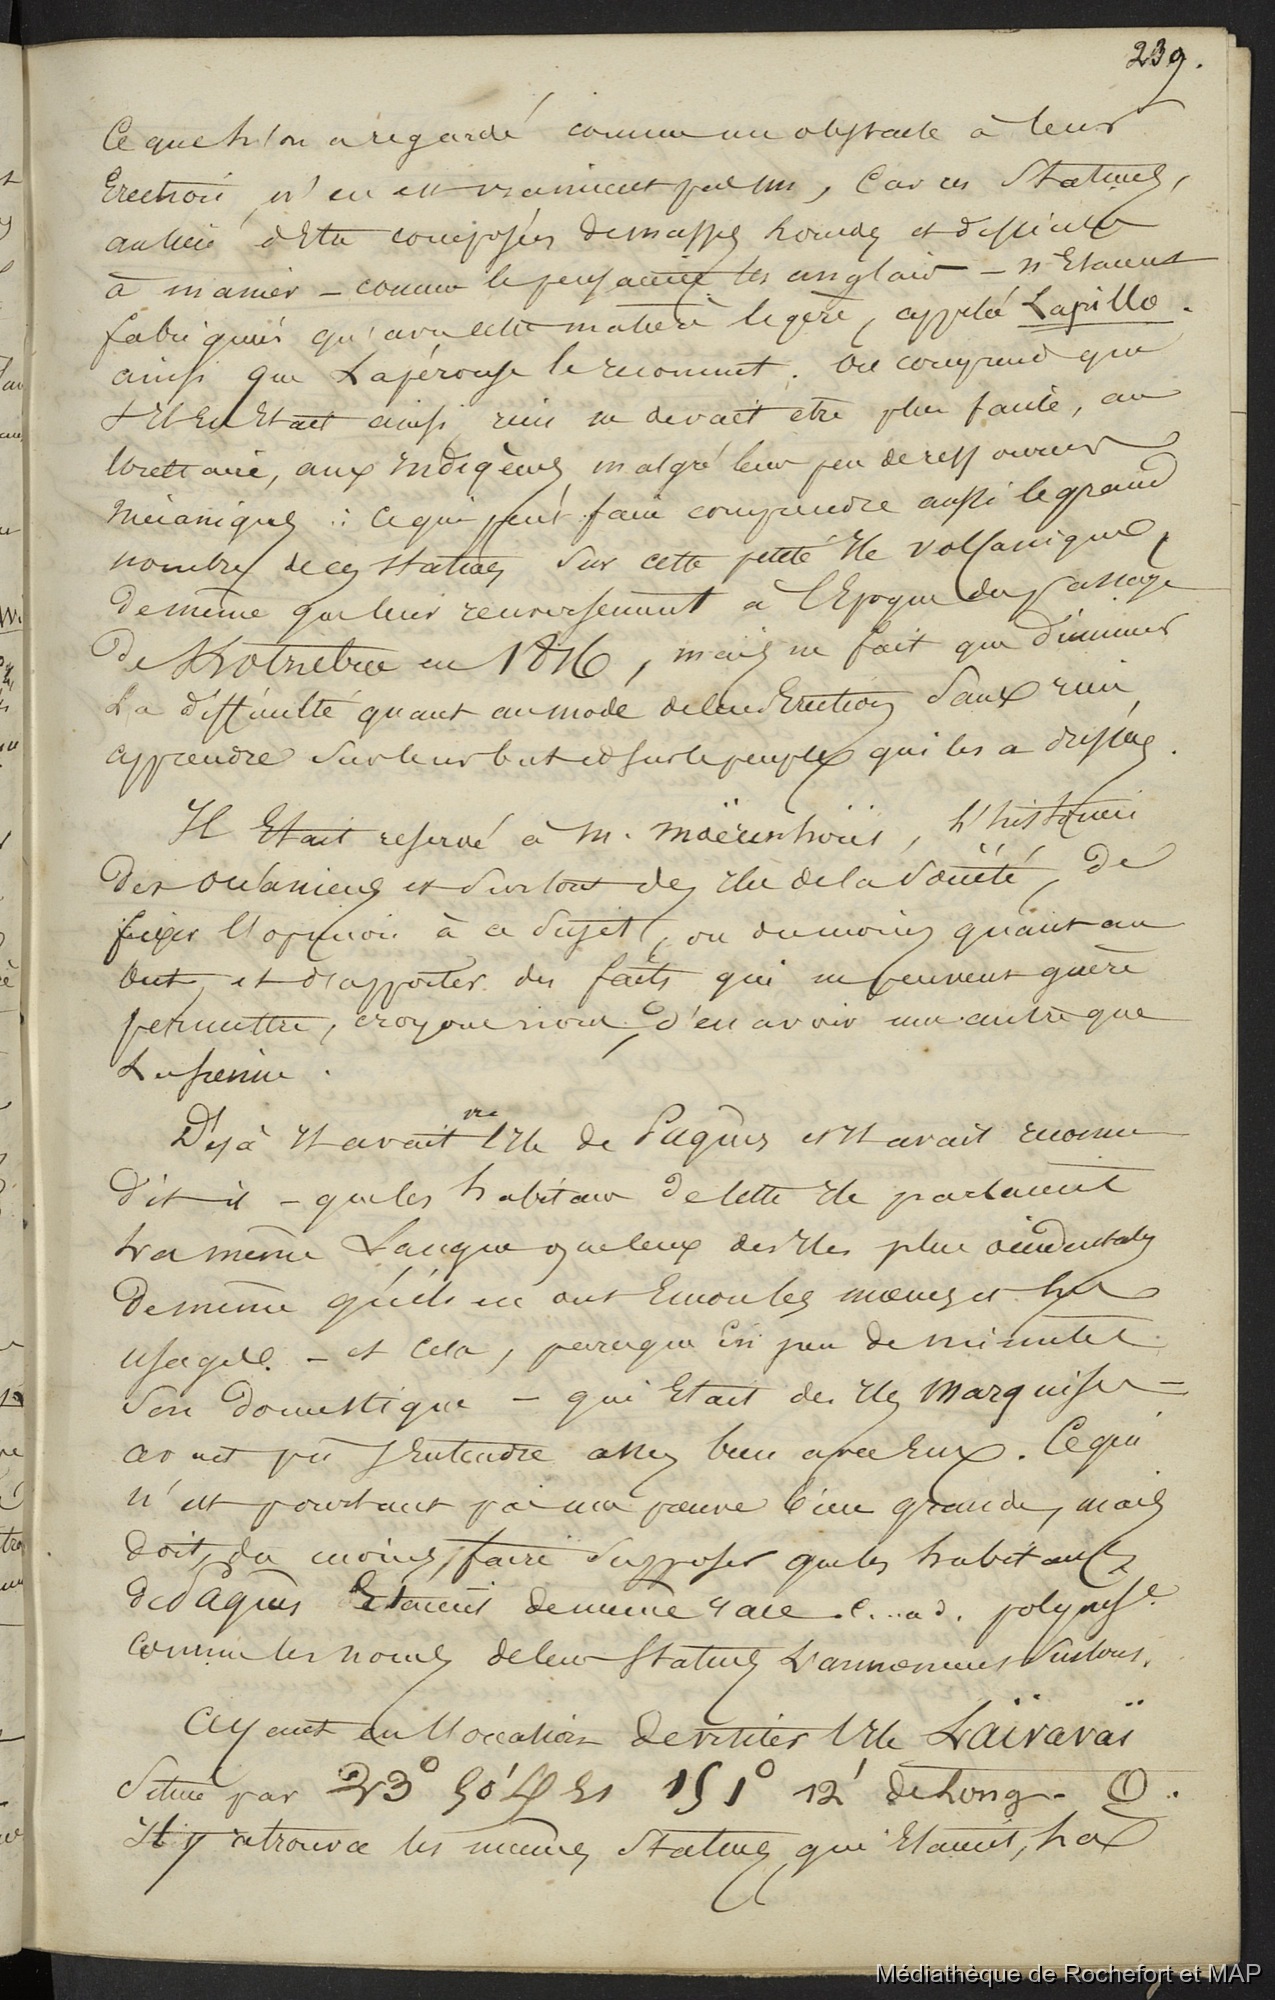 239.
Ce que l'on a regardé comme un obstacle à leur
Erection, n'en est vraiment pas un, Car ces Statues,
au lieu d'Etre composées de masses lourdes et difficiles
à manier – comme le pensaient les anglais – n'Etaient
fabriquées qu'avec cette matière légère, appelée Lapillo.
ainsi que Lapérouse le reconnut. On comprend que
s'Il En Etait ainsi, rien ne devait etre plus facile, au
contraire, aux Indigènes, malgré leur peu de ressources
mécaniques : ce qui peut faire comprendre aussi le grand
nombre de ces statues sur cette petite Ile volcanique,
de même que leur renversement à l'Epoque du passage
de Kotzebue en 1816, mais ne fait que diminuer
La difficulté quant au mode de leur Erection sans rien
apprendre sur leur but et sur le peuple qui les a dressées.
Il Etait reservé à M. Moërenhoüt, l'historien
des océaniens et surtout des Iles de la Société, de
fixer l'opinion à ce Sujet, ou du moins quant au
but, et d'apporter des faits qui ne peuvent guère
permettre, croyons nous, d'en avoir une autre que
La sienne.
Déjà Il avait vu l'Ile de Pâques et Il avait reconnu
dit-il – que les habitans de cette Ile parlaient
La même Langue que ceux des Iles plus occidentales
de même qu'ils en ont Encore les mœurs et les
usages. – et Cela, parceque En peu de minutes
Son Domestique – qui Etait des Iles Marquises –
avait pu s'Entendre assez bien avec Eux. Ce qui
n'est pourtant pas une preuve bien grande, mais
doit, du moins, faire supposer que les habitans
de Pâques Etaient de même race c...a.d. polynés.e
comme les noms de leurs Statues L'annoncent surtout.
Ayant eu l'occasion de visiter l'Ile Laïvavaï
Située par 23° 50' S Et 151° 12' de Long. O.
Il y retrouva les mêmes Statues, qui Etaient, là
Médiathèque de Rochefort et MAP